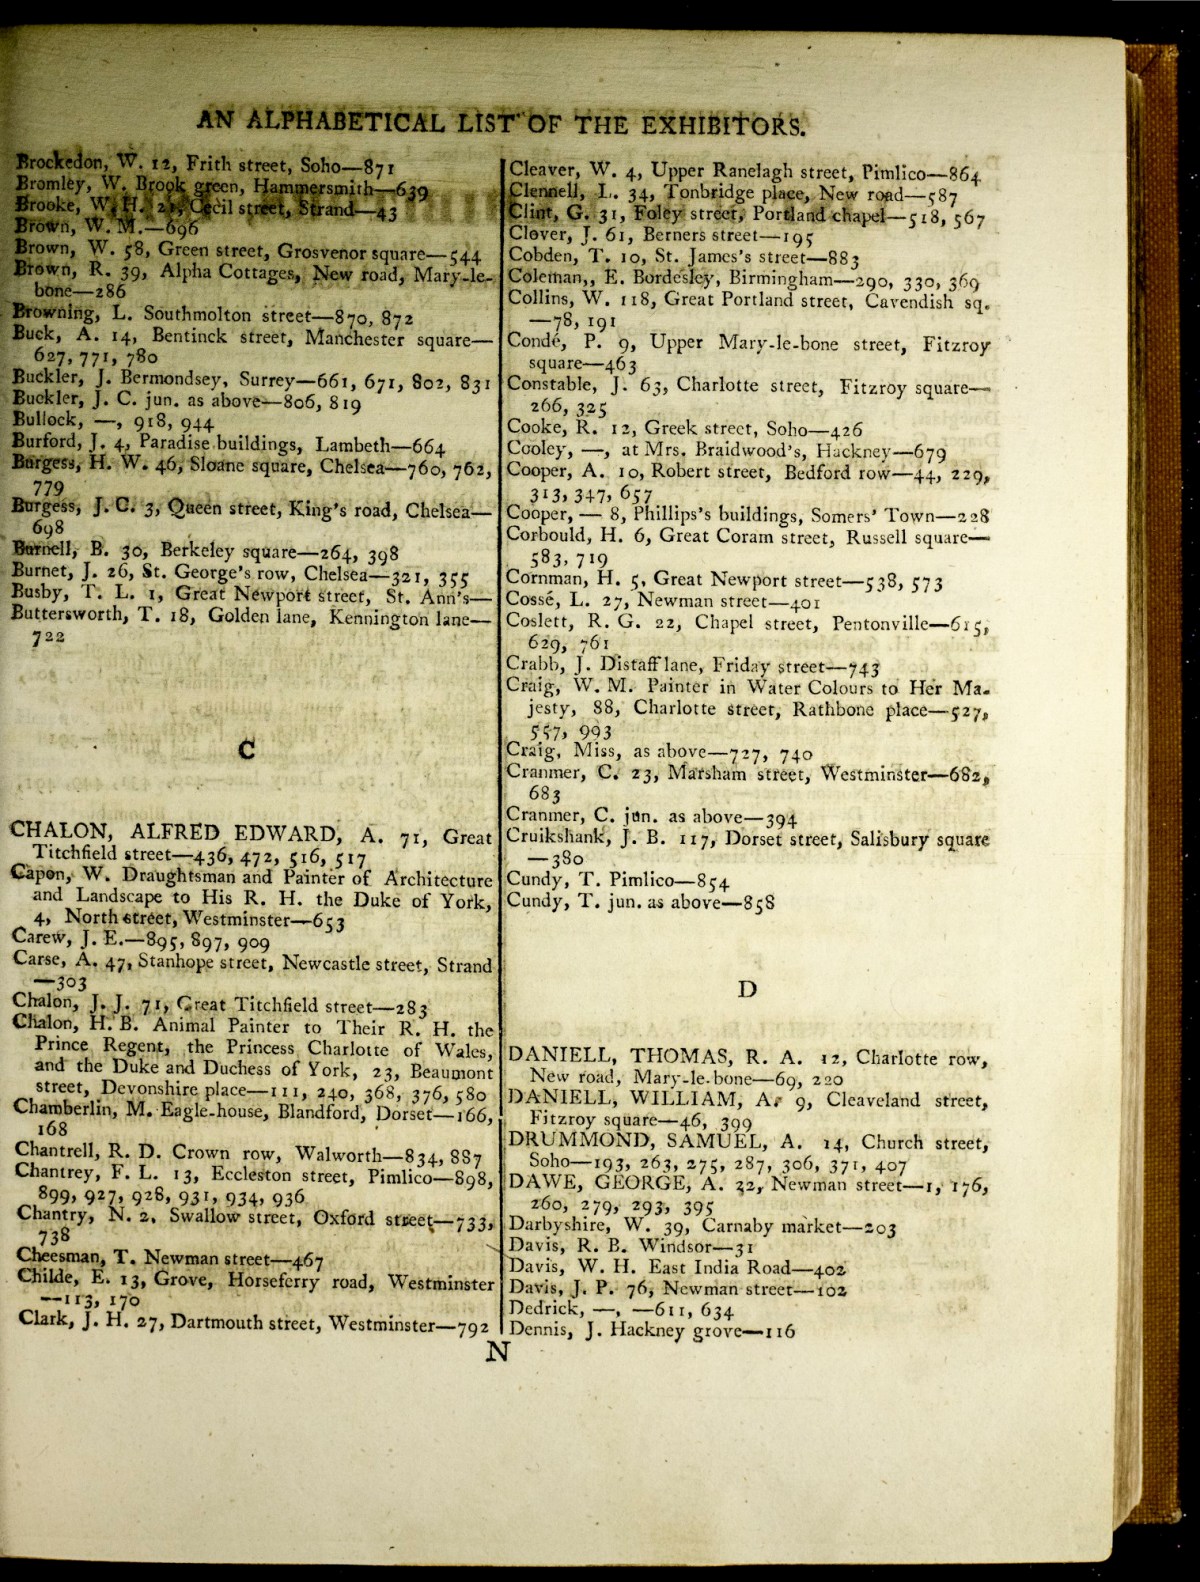 AN ALPHABETICAL LIST OF THE EXHIBITORS.
Brockedon, W. 12, Frith street, Soho—871
Bromley, W. Brook green, Hammersmith—639
Brooke, W. H. 21, Cecil street, Strand—43
Brown, W. M.—696
Brown, W. 58, Green street, Grosvenor square—544
Brown, R. 39, Alpha Cottages, New road, Mary-le-
bone—286
Browning, L. Southmolton street—870, 872
Buck, A. 14, Bentinck street, Manchester square—
627, 771, 780
Buckler, J. Bermondsey, Surrey—661, 671, 802, 831
Buckler, J. C. jun. as above—806, 819
Bullock, —, 918, 944
Burford, J. 4, Paradise buildings, Lambeth—664
Burgess, H. W. 46, Sloane square, Chelsea—760, 762,
779
Burgess, J. C. 3, Queen street, King's road, Chelsea—
698
Burnell, B. 30, Berkeley square—264, 398
Burnet, J. 26, St. George's row, Chelsea—321, 355
Busby, T. L. 1, Great Newport street, St. Ann's—
Buttersworth, T. 18, Golden lane, Kennington lane—
722
C
CHALON, ALFRED EDWARD, A. 71, Great
Titchfield street—436, 472, 516, 517
Capon, W. Draughtsman and Painter of Architecture
and Landscape to His R. H. the Duke of York,
4, North street, Westminster—653
Carew, J. E.—895, 897, 909
Carse, A. 47, Stanhope street, Newcastle street, Strand
—303
Chalon, J. J. 71, Great Titchfield street—283
Chalon, H. B. Animal Painter to Their R. H. the
Prince Regent, the Princess Charlotte of Wales,
and the Duke and Duchess of York, 23, Beaumont
street, Devonshire place—111, 240, 368, 376, 580
Chamberlin, M. Eagle-house, Blandford, Dorset—166,
168
Chantrell, R. D. Crown row, Walworth—834, 887
Chantrey, F. L. 13, Eccleston street, Pimlico—898,
899, 927, 928, 931, 934, 936
Chantry, N. 2, Swallow street, Oxford street—733,
738
Cheesman, T. Newman street—467
Childe, E. 13, Grove, Horseferry road, Westminster
—113, 170
Clark, J. H. 27, Dartmouth street, Westminster—792
Cleaver, W. 4, Upper Ranelagh street, Pimlico—864
Clennell, L. 34, Tonbridge place, New road—587
Clint, G. 31, Foley street, Portland chapel—518, 567
Clover, J. 61, Berners street—195
Cobden, T. 10, St. James's street—883
Coleman,, E. Bordesley, Birmingham—290, 330, 369
Collins, W. 118, Great Portland street, Cavendish sq.
—78, 191
Condé, P. 9, Upper Mary-le-bone street, Fitzroy
square—463
Constable, J. 63, Charlotte street, Fitzroy square—
266, 325
Cooke, R. 12, Greek street, Soho—426
Cooley, —, at Mrs. Braidwood's, Hackney—679
Cooper, A. 10, Robert street, Bedford row—44, 229,
313, 347, 657
Cooper, — 8, Phillips's buildings, Somers' Town—228
Corbould, H. 6, Great Coram street, Russell square—
583, 719
Cornman, H. 5, Great Newport street—538, 573
Cossé, L. 27, Newman street—401
Coslett, R. G. 22, Chapel street, Pentonville—615,
629, 761
Crabb, J. Distaff lane, Friday street—743
Craig, W. M. Painter in Water Colours to Her Ma-
jesty, 88, Charlotte street, Rathbone place—527,
557, 993
Craig, Miss, as above—727, 740
Cranmer, C. 23, Marsham street, Westminster—682,
683
Cranmer, C. jun. as above—394
Cruikshank, J. B. 117, Dorset street, Salisbury square
—380
Cundy, T. Pimlico—854
Cundy, T. jun. as above—858
D
DANIELL, THOMAS, R. A. 12, Charlotte row,
New road, Mary-le-bone—69, 220
DANIELL, WILLIAM, A. 9, Cleaveland street,
Fitzroy square—46, 399
DRUMMOND, SAMUEL, A. 14, Church street,
Soho—193, 263, 275, 287, 306, 371, 407
DAWE, GEORGE, A. 32, Newman street—1, 176,
260, 279, 293, 395
Darbyshire, W. 39, Carnaby market—203
Davis, R. B. Windsor—31
Davis, W. H. East India Road—402
Davis, J. P. 76, Newman street—102
Dedrick, —, —611, 634
Dennis, J. Hackney grove—116
N